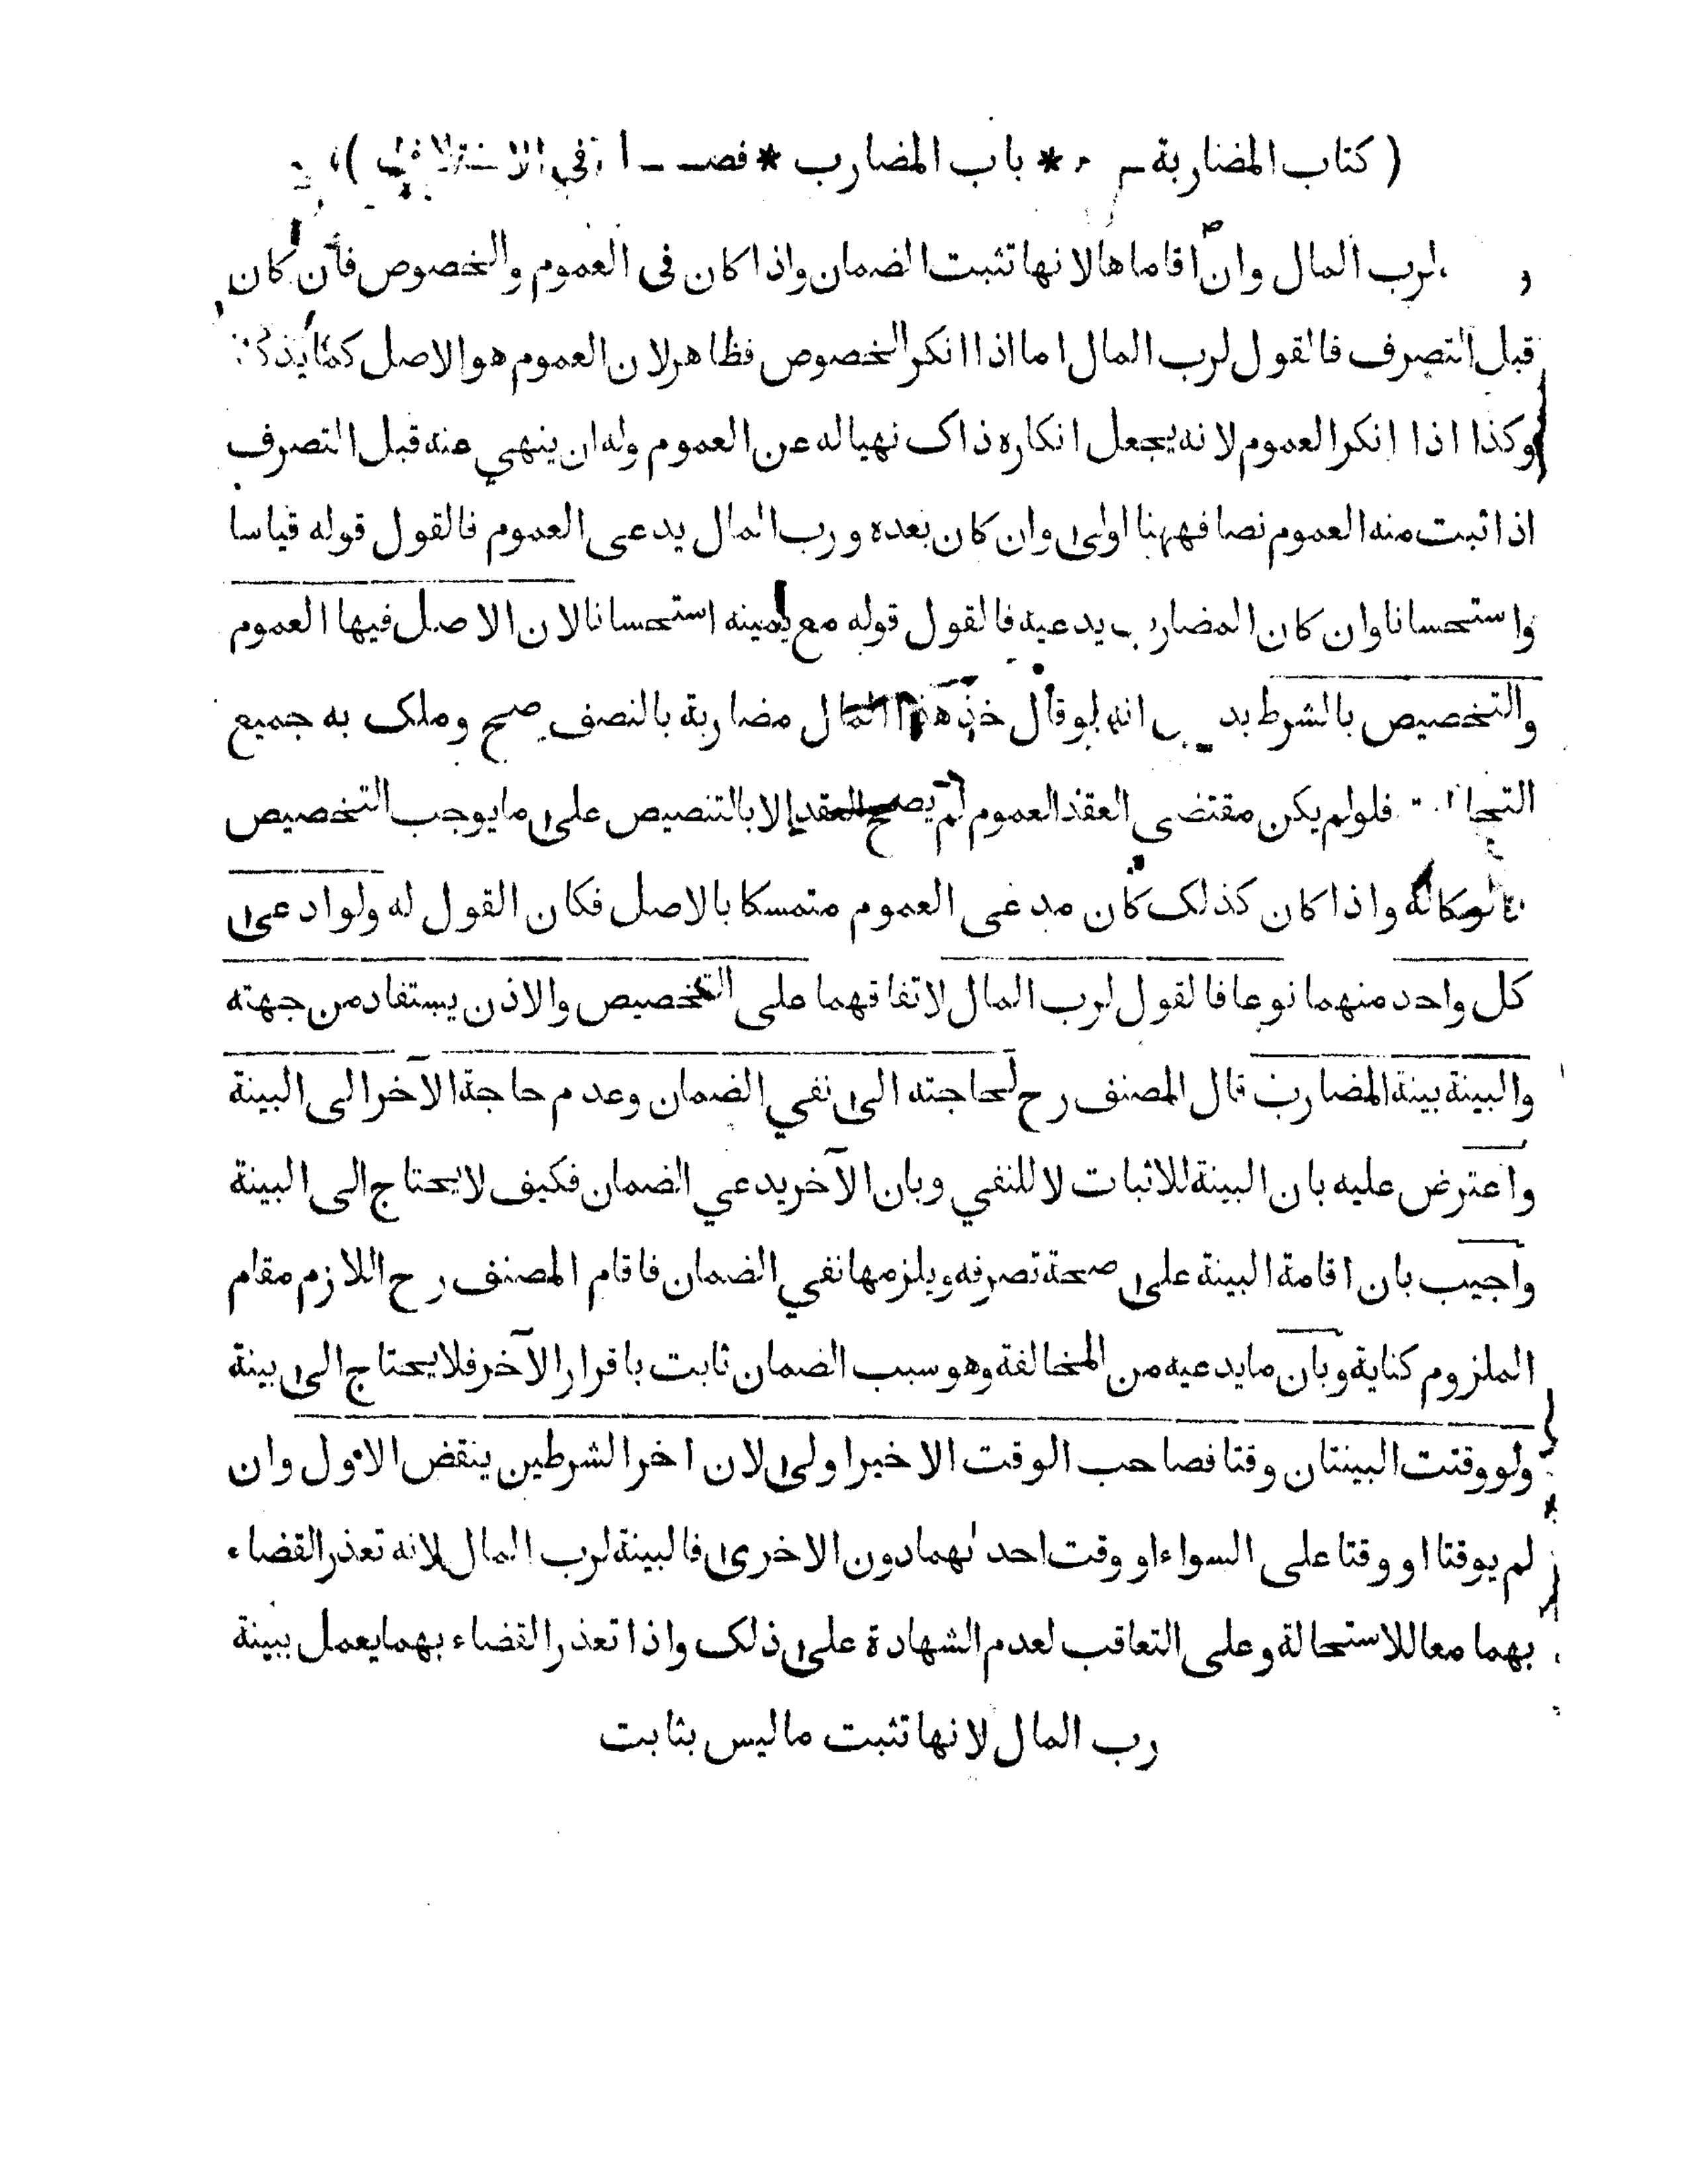 ( كتاب المضاربة * باب المضارب * فصل في الاختلاف )
لرب المال وان اقاماها لانها تثبت الضمان واذا كان في العموم والخصوص فأن كان
قبل التصرف فالقول لرب المال اما اذا انكر الخصوص فظاهر لان العموم هو الاصل كما يذكر
وكذا اذا انكر العموم لانه يجعل انكاره ذاک نهيا له عن العموم وله ان ينهي عنه قبل التصرف
اذا ثبت منه العموم نصا فههنا اولى وان كان بعده ورب المال يدعى العموم فالقول قوله قياسا
واستحسانا وان كان المضارب يدعيه فالقول قوله مع يمينه استحسانا لان الاصل فيها العموم
والتخصيص بالشرط انه لو قال خذ هذا المال مضاربة بالنصف صح وملک به جميع
فلو لم يكن مقتضى العقد العموم لم يصح العقد الا بالتنصيص على ما يوجب التخصيص
كالوكالة واذا كان كذلک كان مدعى العموم متمسكا بالاصل فكان القول له ولو ادعى
كل واحد منهما نوعا فالقول لرب المال لاتفاقهما على التخصيص والاذن يستفاد من جهته
والبينة بينة المضارب قال المصنف رح لحاجته الى نفي الضمان وعدم حاجة الآخر الى البينة
واعترض عليه بان البينة للاثبات لا للنفي وبان الآخر يدعي الضمان فكيف لا يحتاج الى البينة
واجيب بان اقامة البينة على صحة تصرفه ويلزمها نفي الضمان فاقام المصنف رح اللازم مقام
الملزوم كناية وبان ما يدعيه من المخالفة وهو سبب الضمان ثابت باقرار الآخر فلا يحتاج الى بينة
ولو وقتت البينتان وقتا فصاحب الوقت الاخير اولى لان اخر الشرطين ينقض الاول وان
لم يوقتا او وقتا على السواء او وقت احدٰهما دون الاخرى فالبينة لرب المال لانه تعذر القضاء
بهما معا للاستحالة وعلى التعاقب لعدم الشهادة على ذلک واذا تعذر القضاء بهما يعمل ببينة
رب المال لانها تثبت ما ليس بثابت